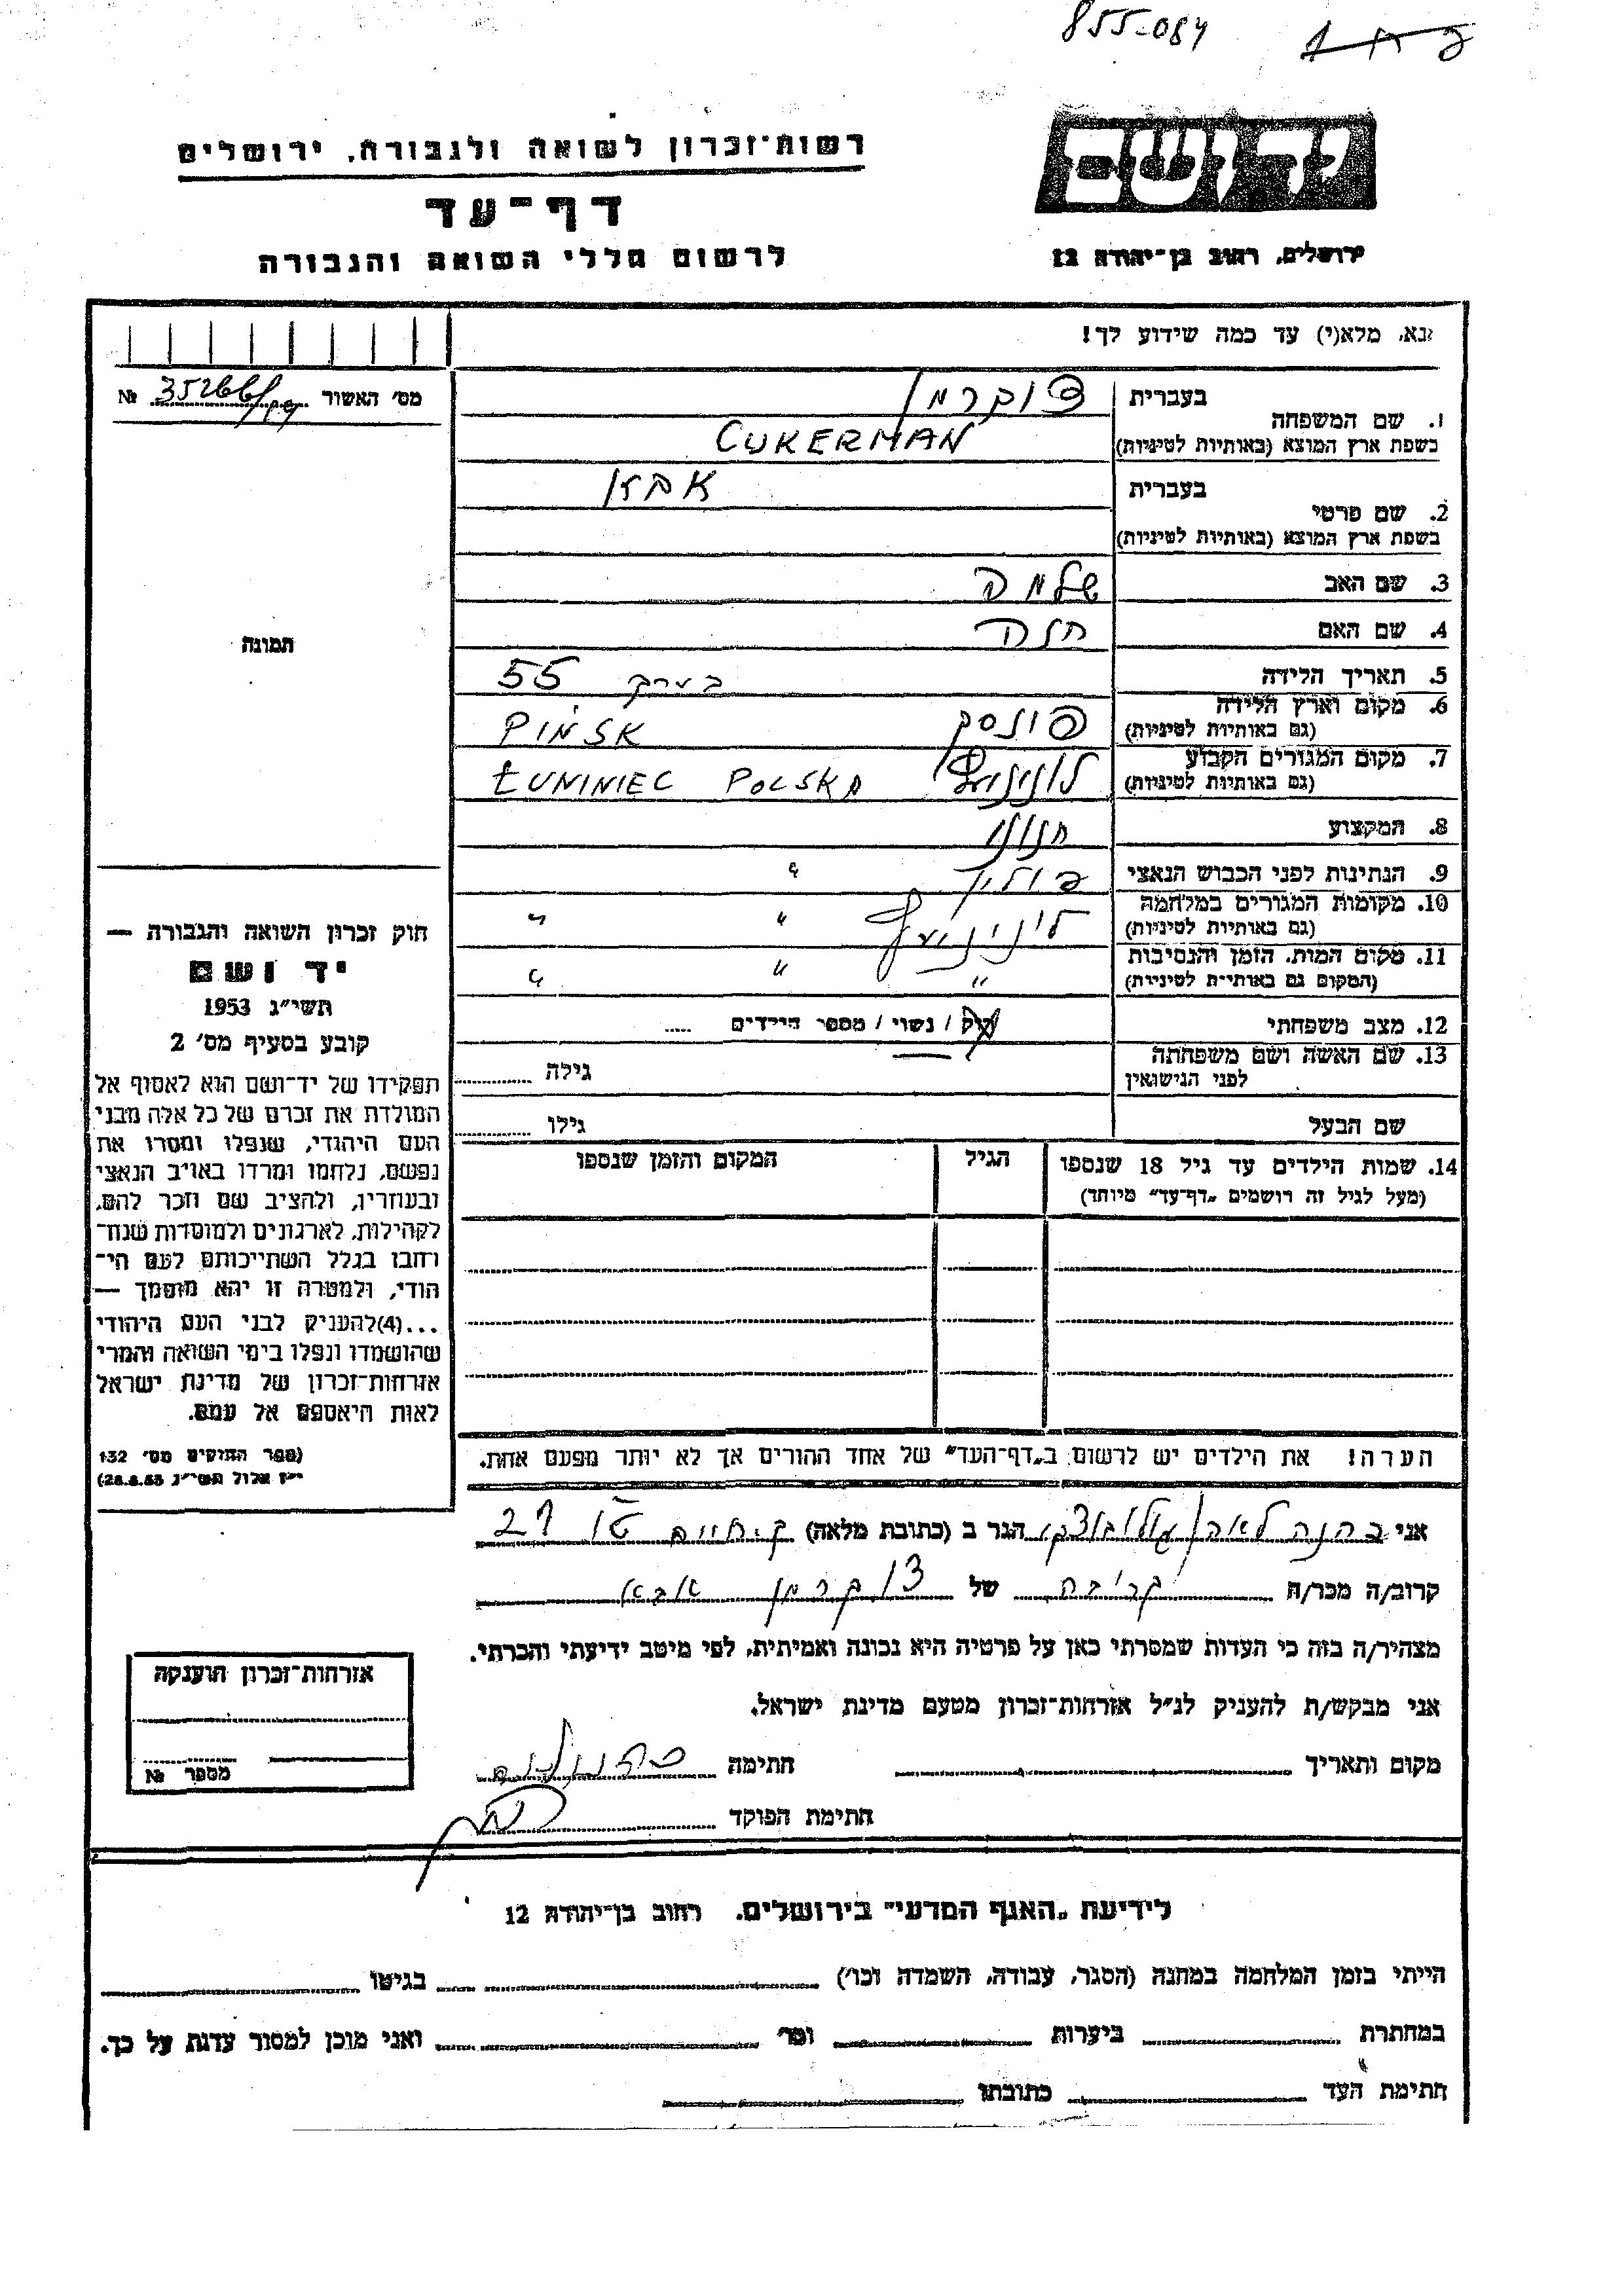 855-084
יד ושם
רשות־זכרון לשואה ולגבורה, ירושלים
דף־עד
לרשום חללי השואה והגבורה
ירושלים, רחוב בן־יהודה 12
נא, מלא(י) עד כמה שידוע לך!
מס׳ האשור № 352666
1. שם המשפחה
בעברית צוקרמן
בשפת ארץ המוצא (באותיות לטיניות) CUKERMAN
2. שם פרטי
בעברית אבא
בשפת ארץ המוצא (באותיות לטיניות)
3. שם האב שלמה
4. שם האם חנה
5. תאריך הלידה בערך 55
6. מקום וארץ הלידה (גם באותיות לטיניות) פינסק PIŃSK
7. מקום המגורים הקבוע (גם באותיות לטיניות) לונינייץ ŁUNINIEC POLSKA
8. המקצוע חנוני
9. הנתינות לפני הכבוש הנאצי פולין "
10. מקומות המגורים במלחמה (גם באותיות לטיניות) לונינייץ " "
11. מקום המות, הזמן והנסיבות (המקום גם באותיות לטיניות) " " "
12. מצב משפחתי רוק / נשוי / מספר הילדים .....
13. שם האשה ושם משפחתה לפני הנישואין גילה
שם הבעל גילו
14. שמות הילדים עד גיל 18 שנספו
(מעל לגיל זה רושמים „דף־עד" מיוחד)
הגיל
המקום והזמן שנספו
תמונה
חוק זכרון השואה והגבורה —
יד ושם
תשי״ג 1953
קובע בסעיף מס׳ 2
תפקידו של יד־ושם הוא לאסוף אל
המולדת את זכרם של כל אלה מבני
העם היהודי, שנפלו ומסרו את
נפשם, נלחמו ומרדו באויב הנאצי
ובעוזריו, ולהציב שם וזכר להם,
לקהילות, לארגונים ולמוסדות שנח־
רחבו בגלל השתייכותם לעם הי־
הודי, ולמטרה זו יהא מוסמך —
...(4)להעניק לבני העם היהודי
שהושמדו ונפלו בימי השואה והמרי
אזרחות־זכרון של מדינת ישראל
לאות היאספם אל עמם.
(ספר החוקים מס׳ 132
י״ז אלול תשי״ג 28.8.53)
הערה! את הילדים יש לרשום ב„דף־העד" של אחד ההורים אך לא יותר מפעם אחת.
אני הגר ב (כתובת מלאה) ק. חיים 27
קרוב/ה מכר/ה קרובה של צוקרמן אבא
מצהיר/ה בזה כי העדות שמסרתי כאן על פרטיה היא נכונה ואמיתית, לפי מיטב ידיעתי והכרתי.
אני מבקש/ת להעניק לנ״ל אזרחות־זכרון מטעם מדינת ישראל.
מקום ותאריך חתימה
חתימת הפוקד
אזרחות־זכרון הוענקה
מספר №
לידיעת „האגף המדעי" בירושלים. רחוב בן־יהודה 12
הייתי בזמן המלחמה במחנה (הסגר, עבודה, השמדה וכו׳) בגיטו
במחתרת ביערות וכו׳ ואני מוכן למסור עדות על כך.
חתימת העד כתובתו